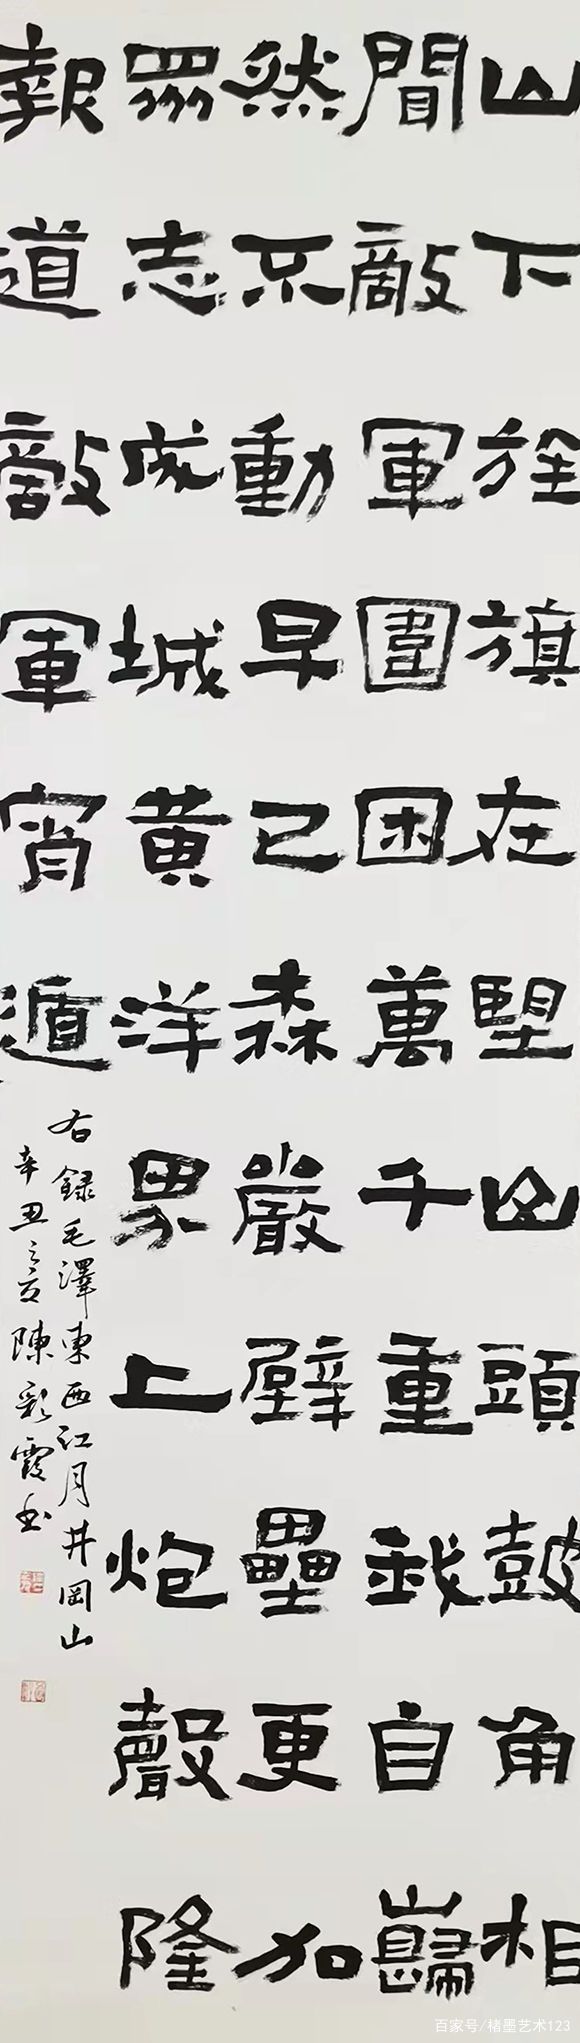 山下旌旗在朢山頭鼓角相
聞敵軍圍困萬千重我自巋
然不動早已森嚴壁壘更加
眾志成城黄洋界上炮聲隆
報道敵軍宵遁
右録毛澤東西江月井岡山
辛丑之夏陳彩霞书
百家号/楮墨艺术123